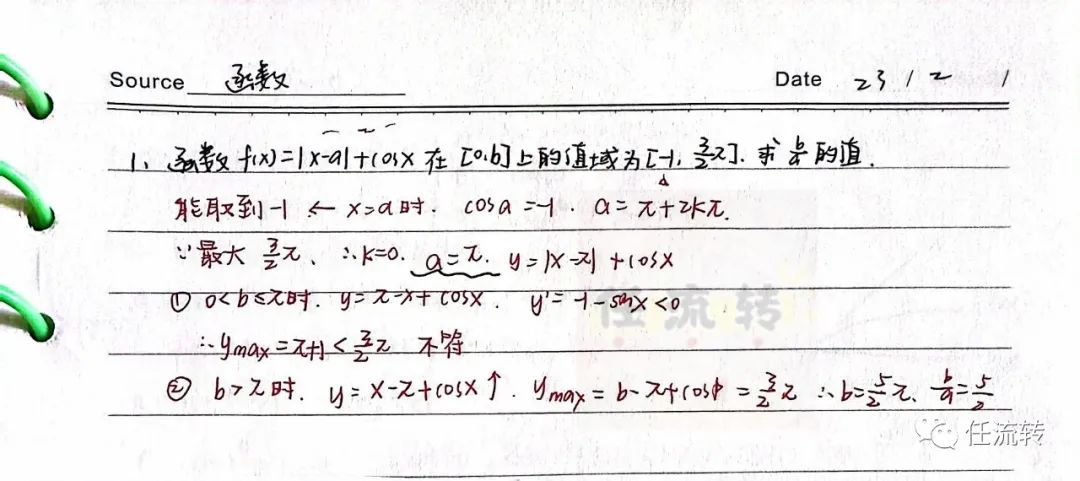 Source 函数 Date 23 / 2 /
1、函数 f(x)=|x-a|+cosx 在 [0,b] 上的值域为[-1, 3/2π]. 求 b/a 的值.
能取到-1 ← x=a时. cosa=-1. a=π+2kπ.
∵最大 3/2π、∴k=0. a=π. y=|x-π|+cosx
① 0<b≤π时. y=π-x+cosx. y'=-1-sinx<0
任流转
∴ymax=π+1<3/2π 不符
② b>π时. y=x-π+cosx↑. ymax=b-π+cosb=3/2π ∴b=5/2π、b/a=5/2
任流转